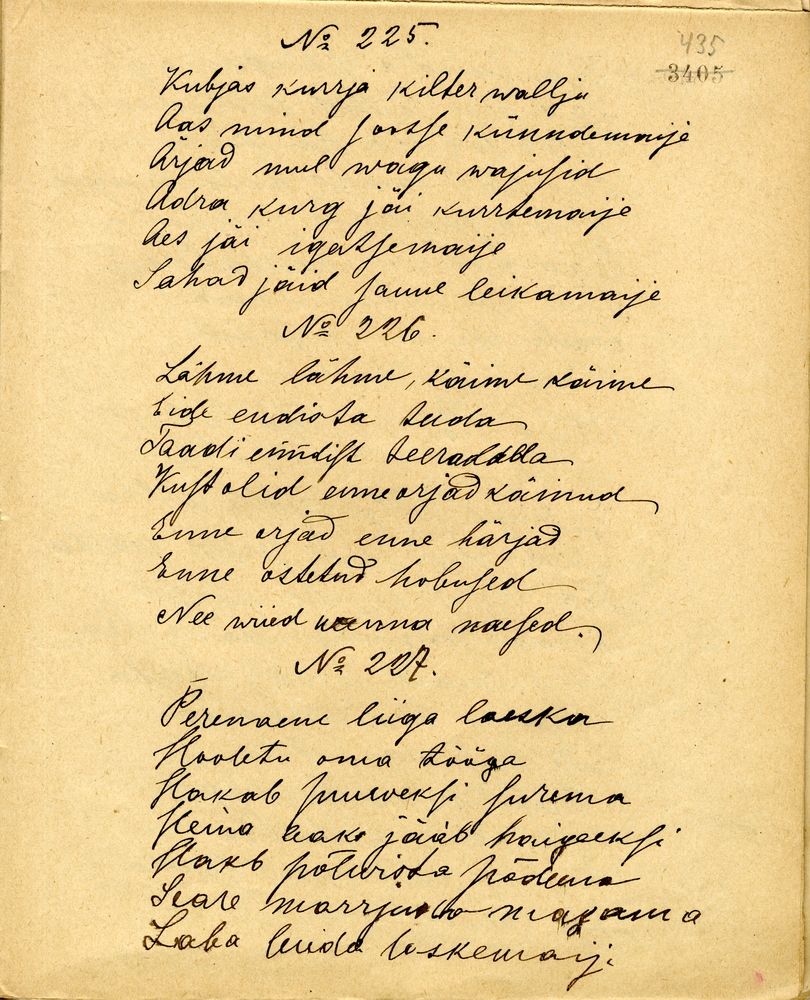 № 225.
435
3405
Kubjas kurrja kilter wallju
Aas mind soosse künndemaije
Ärjad mul wagu wajusid
Adra kurg jäi kurrtemaije
Aes jäi igatsemaije
Sahad jäid saue leikamaije
№ 226.
Lähme lähme, käime käime
Eide endista teeda
Taadi enndist teeradalla
Kust olid enne orjad käinud
Enne orjad enne härjad
Enne ostetud hobused
Nee wiied naesed.
№ 227.
Perenaene liiga laeska
Hooletu oma tööga
Hakab suureksi surema
Heina aaks jääb haigeeksi
Hakb põlwista põdema
Seare marrjusta magama
Laba luida laskemaij.